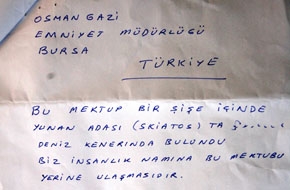 OSMAN GAZİ
EMNİYET MÜDÜRLÜGÜ
BURSA
TÜRKİYE
BU MEKTUP BİR ŞİŞE İÇİNDE
YUNAN ADASI (SKIATOS) TA
DENİZ KENERINDA BULUNDU
BİZ İNSANLIK NAMINA BU MEKTUBU
YERİNE ULAŞMASIDIR.